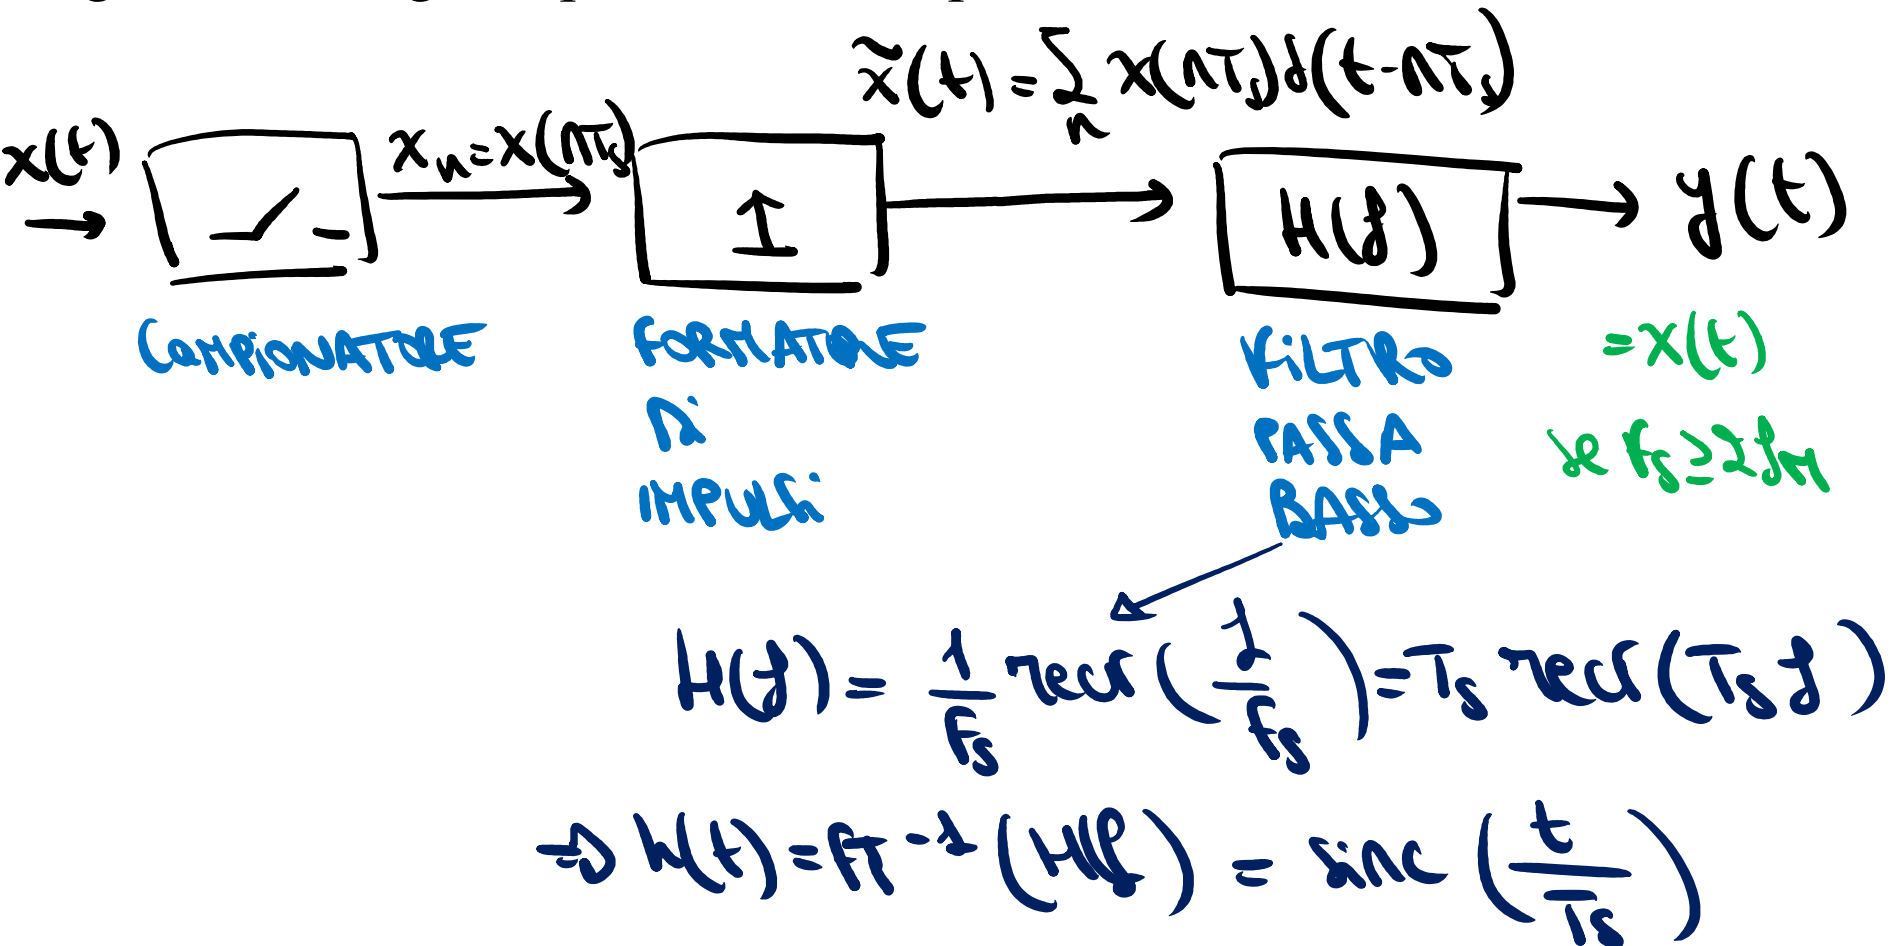 x̃(t) = Σ_n x(nTs) δ(t-nTs)
x(t)
x_n = x(nTs)
H(f)
y(t)
CAMPIONATORE
FORMATORE
DI
IMPULSI
FILTRO
PASSA
BASSO
= x(t)
se Fs ≥ 2fM
H(f) = 1/Fs rect(f/Fs) = Ts rect(Ts f)
⇒ h(t) = FT⁻¹(H(f)) = sinc(t/Ts)